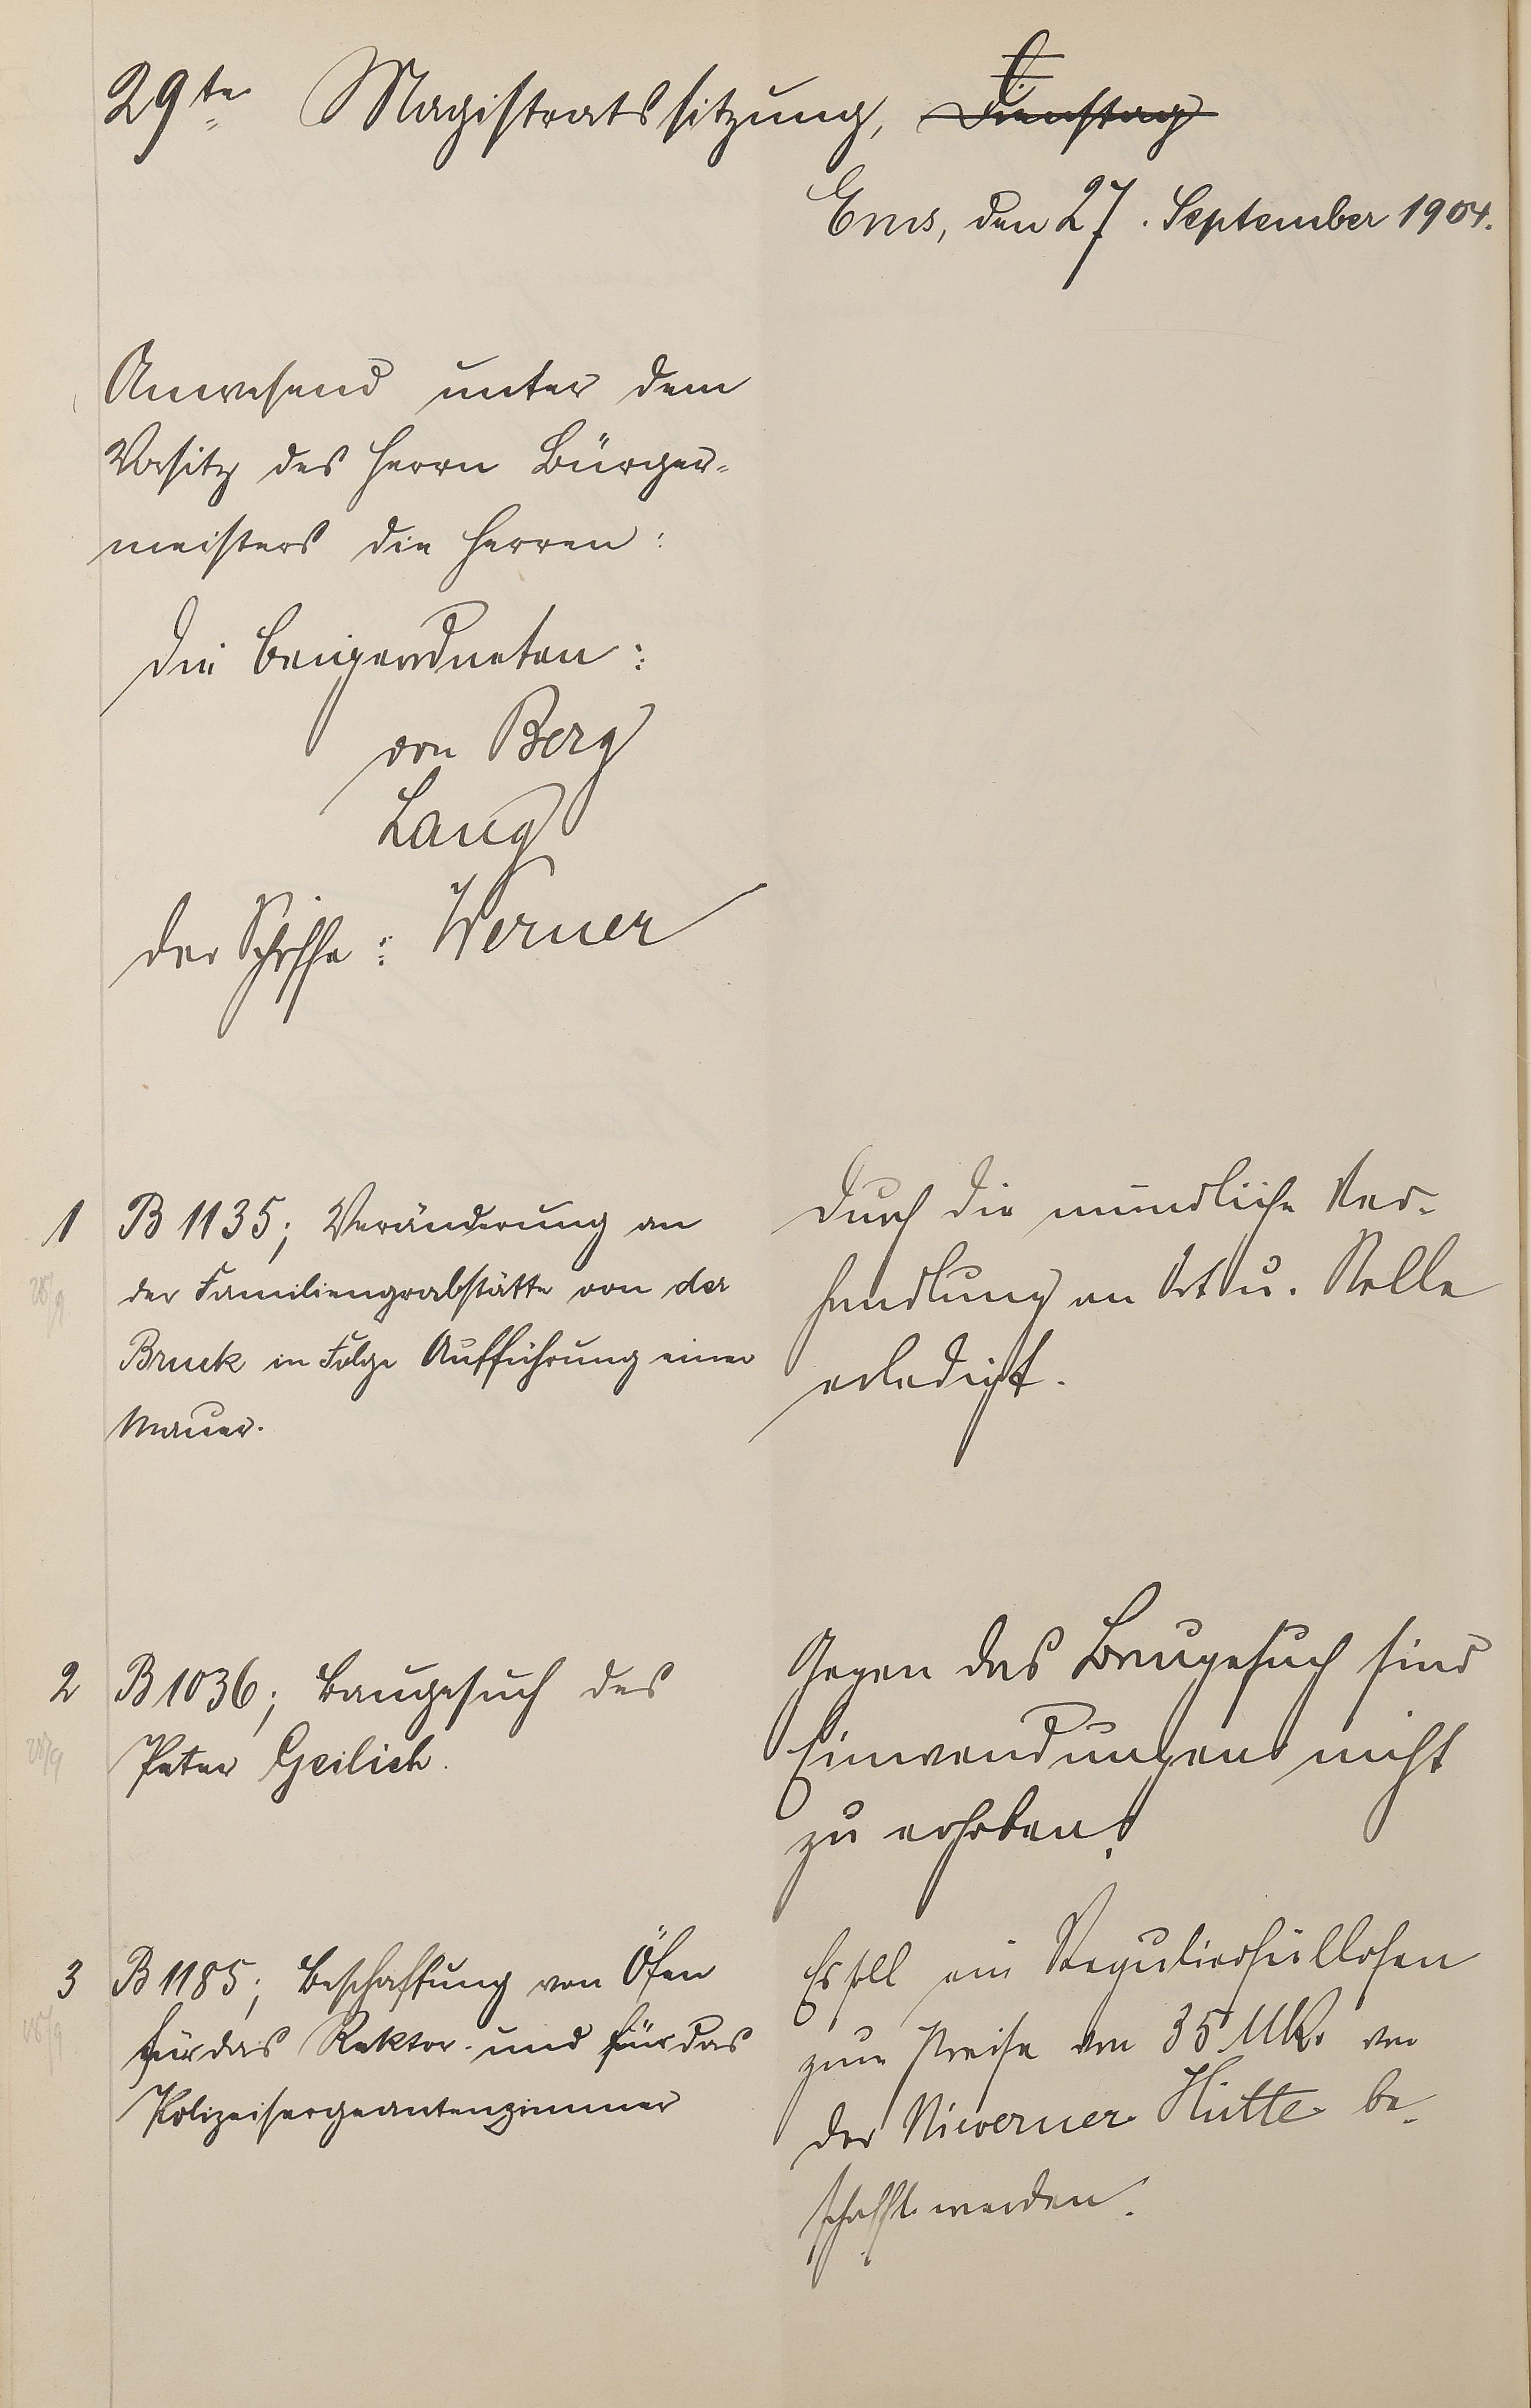 29te Magistratssitzung, Dienstag
Ems, den 27. September 1904.
Anwesend unter dem
Vorsitz des Herrn Bürger-
meisters die Herren:
die Beigeordneten:
von Berg
Lang
der Schöffe: Werner
1 B 1135; Veränderung an
der Familiengrabstätte von der
Bruck in Folge Aufführung einer
Mauer.
Durch die mündliche Ver-
handlung an Ort u. Stelle
erledigt.
2 B 1036; Baugesuch des
Peter Geilich.
28/9
Gegen das Baugesuch sind
Einwendungen nicht
zu erheben.
3 B 1185; Beschaffung von Öfen
für das Rektor- und für das
Polizeisergeantenzimmer
28/9
Es soll ein Regulierfüllofen
zum Preise von 35 Mk. von
der Nieverner Hütte be-
schafft werden.